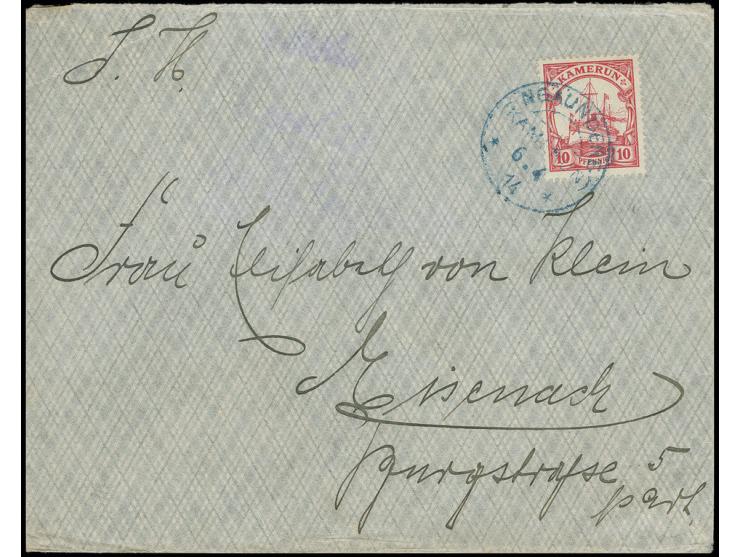 S. H.
KAMERUN
10 PFENNIG 10
NGAUNDERE
6.4
14
Frau Elisabeth von Klein
Eisenach
Burgstraße 5
part.